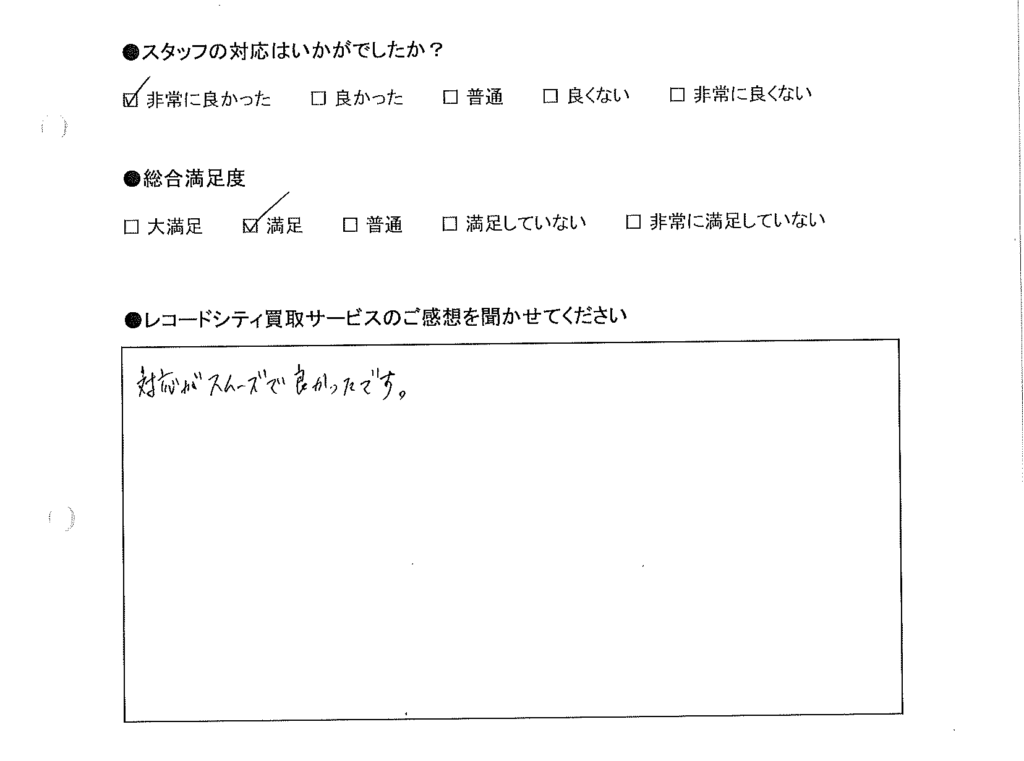 ●スタッフの対応はいかがでしたか？
☑ 非常に良かった □ 良かった □ 普通 □ 良くない □ 非常に良くない
●総合満足度
□ 大満足 ☑ 満足 □ 普通 □ 満足していない □ 非常に満足していない
●レコードシティ買取サービスのご感想を聞かせてください
対応がスムーズで良かったです。